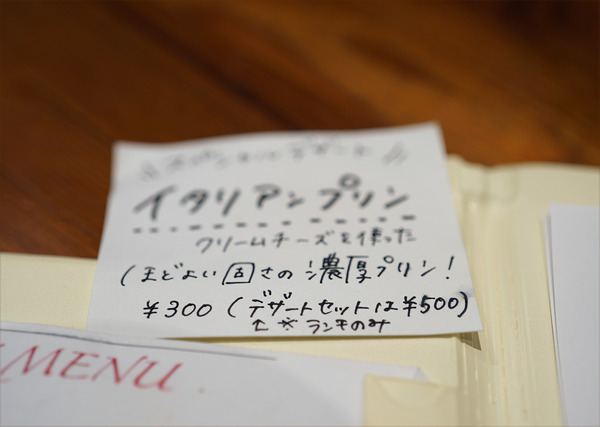 イタリアンプリン
クリームチーズを使った
ほどよい固さの濃厚プリン!
¥300 (デザートセットは¥500)
↑ ※ランチのみ
MENU